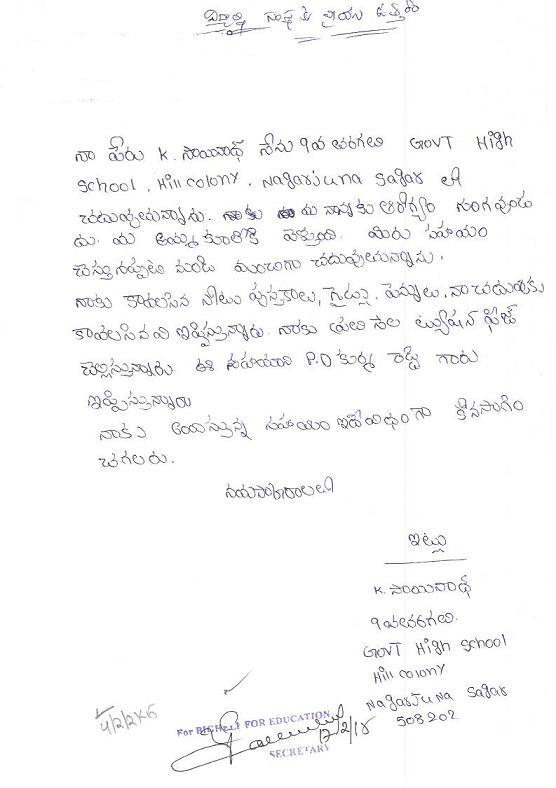 విద్యార్థి సంస్థకు వ్రాయు ఉత్తరం
నా పేరు K. సాయినాథ్ నేను 9వ తరగతి GOVT High
School, Hill colony, Nagarjuna Sagar లో
చదువుతున్నాను. నాకు మా నాన్నకు ఆరోగ్యం
డు. మా అమ్మ కూలికి వెళ్తుంది. మీరు సహాయం
చేస్తునప్పటి నుండి మంచిగా చదువుతున్నాను.
నాకు కావలసిన నోటు పుస్తకాలు, గైడ్లు, పెన్నులు, నా చదువుకు
కావలసినవి ఇప్పిస్తున్నారు. నాకు ప్రతి నెల ట్యూషన్ ఫీజ్
చెల్లిస్తున్నారు. ఈ సహాయాన్ని P.D కుర్మ రెడ్డి గారు
ఇప్పిస్తున్నారు
నాకు అందిస్తున్న సహాయం ఇదేవిధంగా కొనసాగిం
చగలరు.
ఇట్లు
K. సాయినాథ్
9వ తరగతి.
GOVT High School
Hill colony
Nagarjuna Sagar
508202
4/2/2K6
FOR EDUCATION
17/2/16
SECRETARY